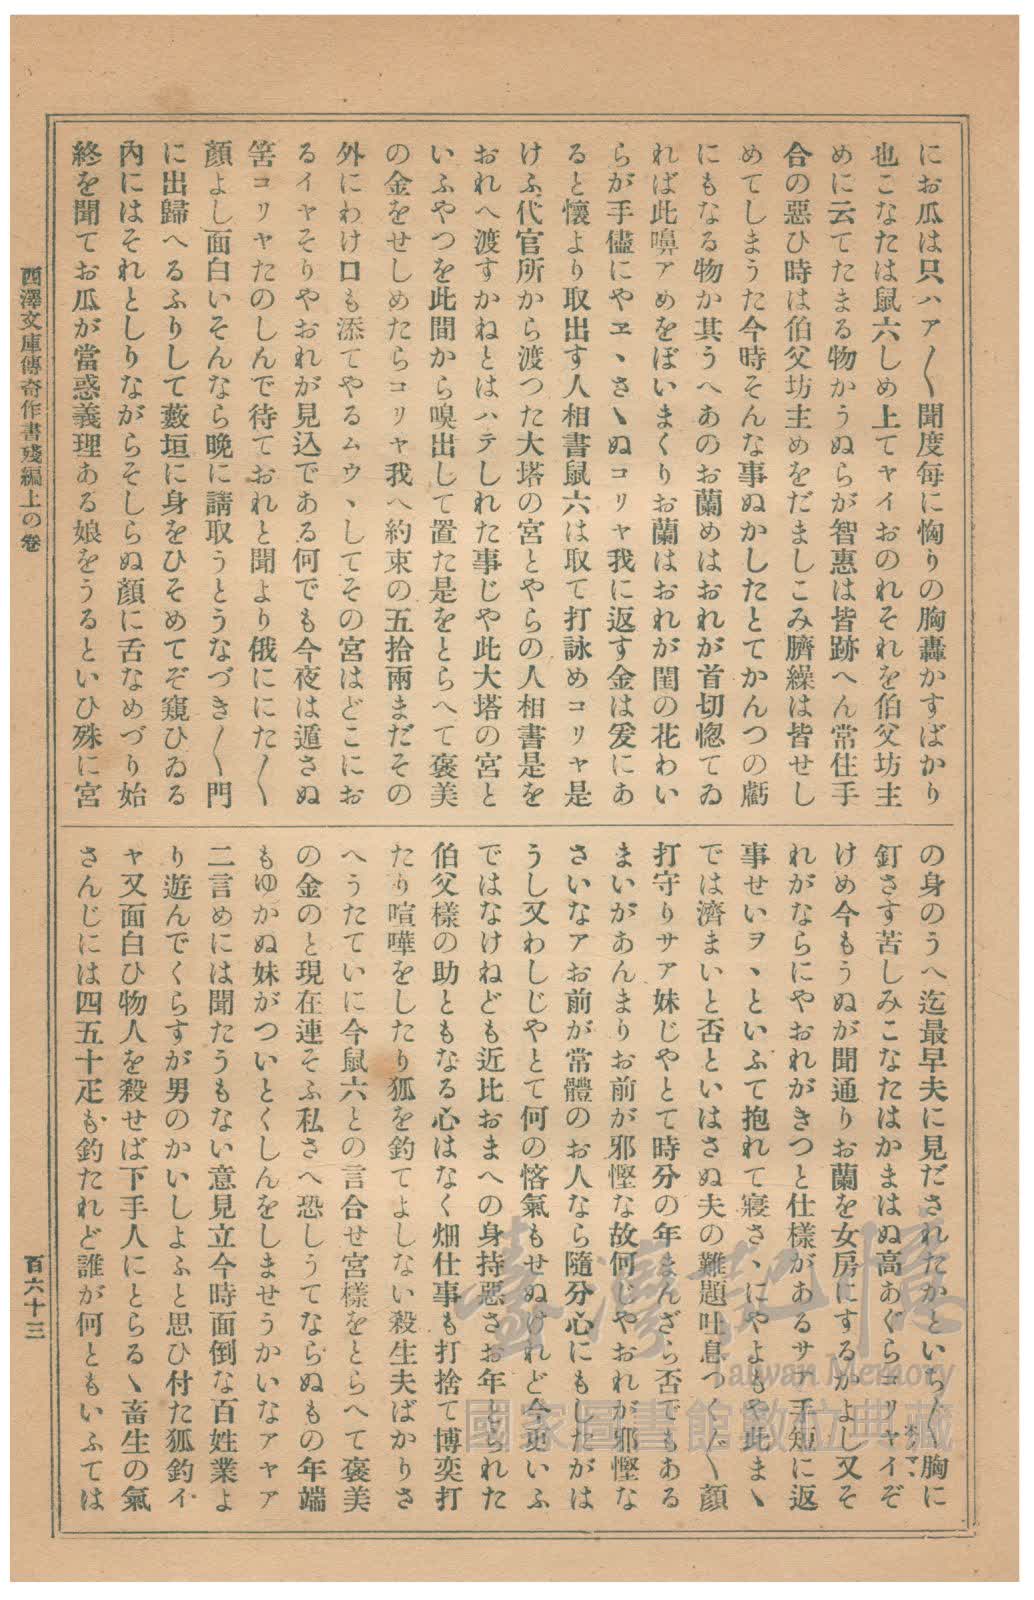 にお瓜は只ハア〱聞度毎に恟りの胸轟かすばかり
也こなたは鼠六しめ上てヤイおのれそれを伯父坊主
めに云てたまる物かうぬらが智惠は皆跡へん常住手
合の惡ひ時は伯父坊主めをだましこみ臍繰は皆せし
めてしまうた今時そんな事ぬかしたとてかんつの虧
にもなる物か其うへあのお蘭めはおれが首切惚てゐ
れば此嚊アめをぼいまくりお蘭はおれが閨の花わい
らが手儘にやヱヽさゝぬコリヤ我に返す金は爰にあ
ると懷より取出す人相書鼠六は取て打詠めコリヤ是
けふ代官所から渡つた大塔の宮とやらの人相書是を
おれへ渡すかねとはハテしれた事じや此大塔の宮と
いふやつを此間から嗅出して置た是をとらへて褒美
の金をせしめたらコリヤ我へ約束の五拾兩まだその
外にわけ口も添てやるムウヽしてその宮はどこにお
るイヤそりやおれが見込である何でも今夜は遁さぬ
筈コリヤたのしんで待ておれと聞より俄ににた〱
顏よし面白いそんなら晩に請取うとうなづき〱門
に出歸へるふりして薮垣に身をひそめてぞ窺ひゐる
內にはそれとしりながらそしらぬ顏に舌なめづり始
終を聞てお瓜が當惑義理ある娘をうるといひ殊に宮
の身のうへ迄最早夫に見だされたかといち〱胸に
釘さす苦しみこなたはかまはぬ高あぐらコリヤイぞ
けめ今もうぬが聞通りお蘭を女房にするかよし又そ
れがならにやおれがきつと仕樣があるサア手短に返
事せいヲヽといふて抱れて寢さゝにやよもや此まゝ
では濟まいと否といはさぬ夫の難題吐息つく〲顏
打守りサア妹じやとて時分の年まんざら否でもある
まいがあんまりお前が邪慳な故何じやおれが邪慳な
さいなアお前が常體のお人なら隨分心にもしたがは
うし又わしじやとて何の悋氣もせぬけれど今更いふ
ではなけねども近比おまへの身持惡さお年しられた
伯父樣の助ともなる心はなく畑仕事も打捨て博奕打
たり喧嘩をしたり狐を釣てよしない殺生夫ばかりさ
へうたていに今鼠六との言合せ宮樣をとらへて褒美
の金のと現在連そふ私さへ恐しうてならぬもの年端
もゆかぬ妹がついとくしんをしませうかいなアヤア
二言めには聞たうもない意見立今時面倒な百姓業よ
り遊んでくらすが男のかいしよふと思ひ付た狐釣イ
ヤ又面白ひ物人を殺せば下手人にとらるゝ畜生の氣
さんじには四五十疋も釣たれど誰が何ともいふては
西澤文庫傳奇作書殘編上の卷
百六十三
臺灣記憶
Taiwan Memory
國家圖書館數位典藏